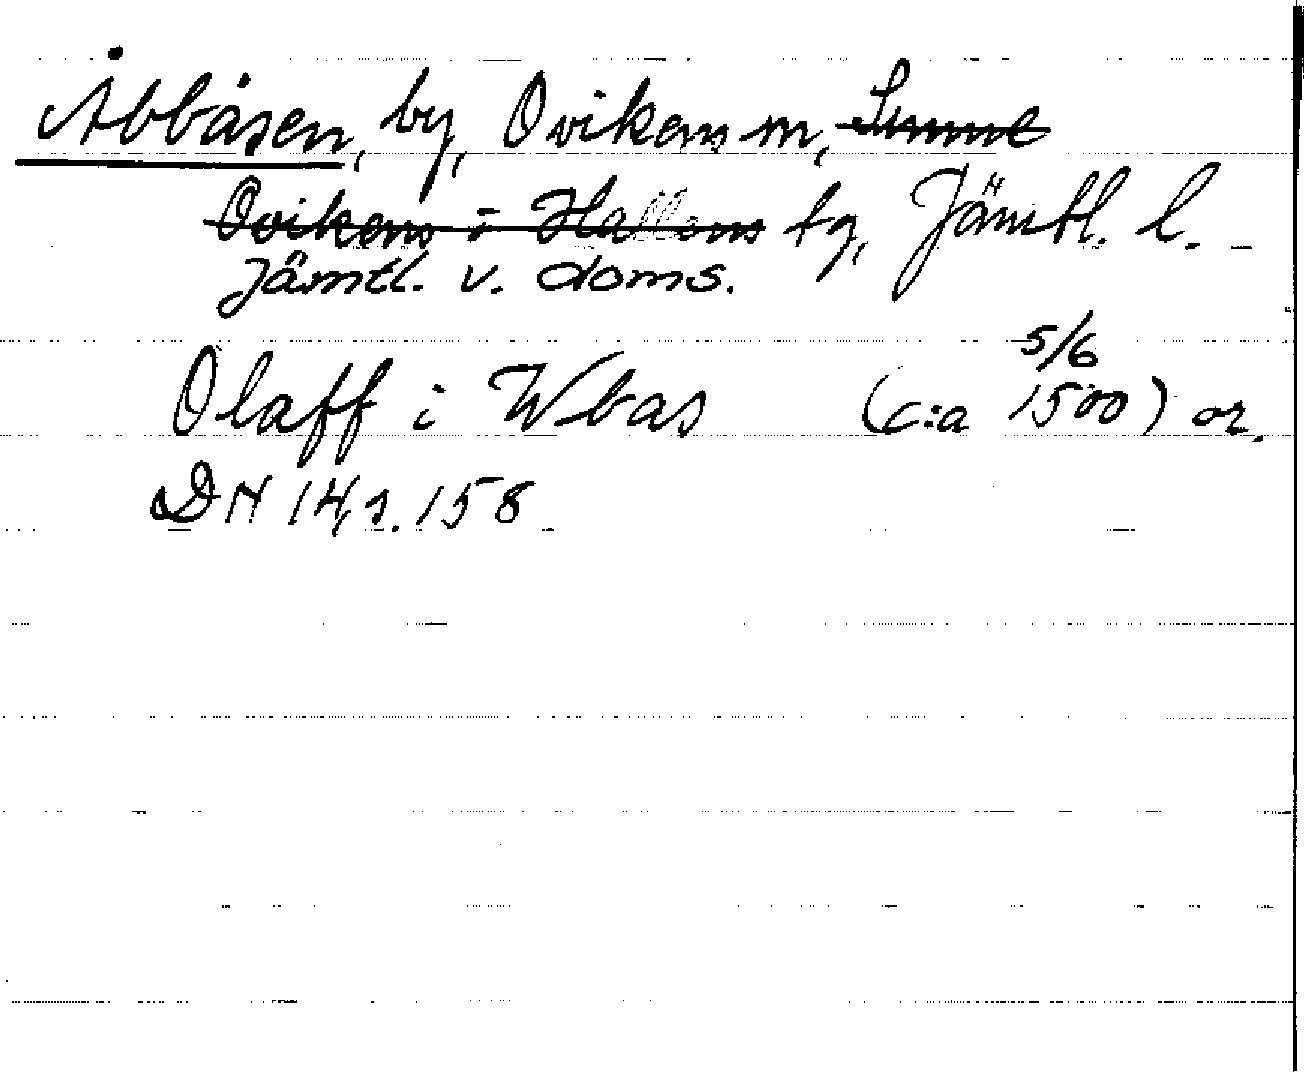 Åbbåsen, by, Ovikens sn, Sunne
Ovikens o Hallens tg, Jämtl. l.
Jämtl. v. doms.
5/6
Olaff i Wbas (c:a 1500) or.
DN 14, s. 158